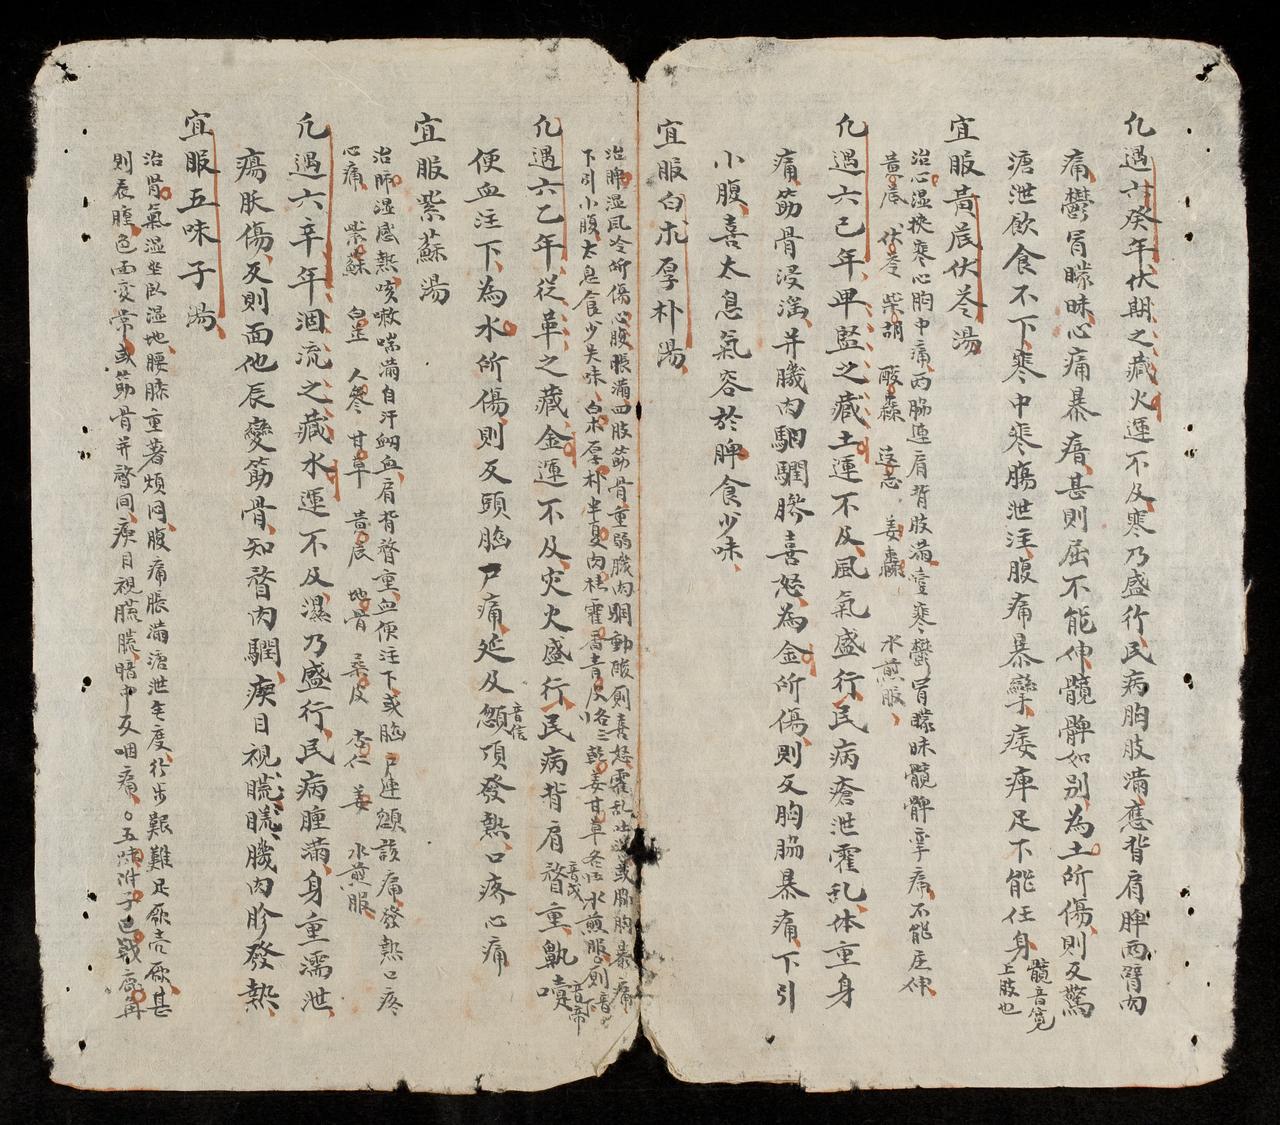 凢遇六癸年伏期之藏火運不及寒乃盛行民病胸肢滿應背肩脾両臂內
痛鬱冐矇昧心痛暴瘖甚則屈不能伸髖髀如別為土所傷則反驚
溏泄飲食不下寒中寒腸泄注腹痛暴孿痿痺足不能任身 髖音寛上肢也
宜服黃茋伏苓湯
治心湿挾寒心胸中痛両脇連肩背肢滿壹寒鬱冐矇昧髖髀孿痛不能屈伸
黃茋 伏苓 柴胡 酸棗 遠志 姜棗 水煎服
凢遇六己年卑監之藏土運不及風氣盛行民病瘡泄霍乱体重身
痛筋骨浸淫并膱肉䐃䐃胯喜怒為金所傷則反胸脇暴痛下引
小腹喜太息氣容於脾食少味
宜服白朮厚朴湯
治脾湿風冷所傷心腹脹滿四肢筋骨重弱膱肉䐃動酸則喜怒霍乱吐瀉或脇胸暴痛
下引小腹太息食少失味白朮厚朴半夏肉桂霍香青皮各三乾姜甘草各四水煎服
凢遇六乙年從革之藏金運不及灾火盛行民病背肩瞀 音茂 重鼽嚏 音帝
便血注下為水所傷則反頭脳戸痛延及顖 音信 項發熱口疼心痛
宜服紫蘇湯
治肺湿感熱咳嗽喘滿自汗衂血肩背瞀重血便注下或脳戸連顖該痛發熱口疼
心痛 紫蘇 白芷 人參 甘草 黃茋 地骨 桑皮 杏仁 姜 水煎服
凢遇六辛年涸流之藏水運不及濕乃盛行民病腫滿身重濡泄
瘍肤傷反則面他辰變筋骨知瞀肉䐃瘈目視䀮䀮膱肉胗發熱
宜服五味子湯
治骨氣湿坐臥湿地腰膝重著煩悶腹痛脹滿溏泄無度行步艱難足厥壳厥甚
則辰腫色面变常或筋骨并瞀間瘈目視䀮䀮暗中反咽痛○五味附子巴戟鹿角